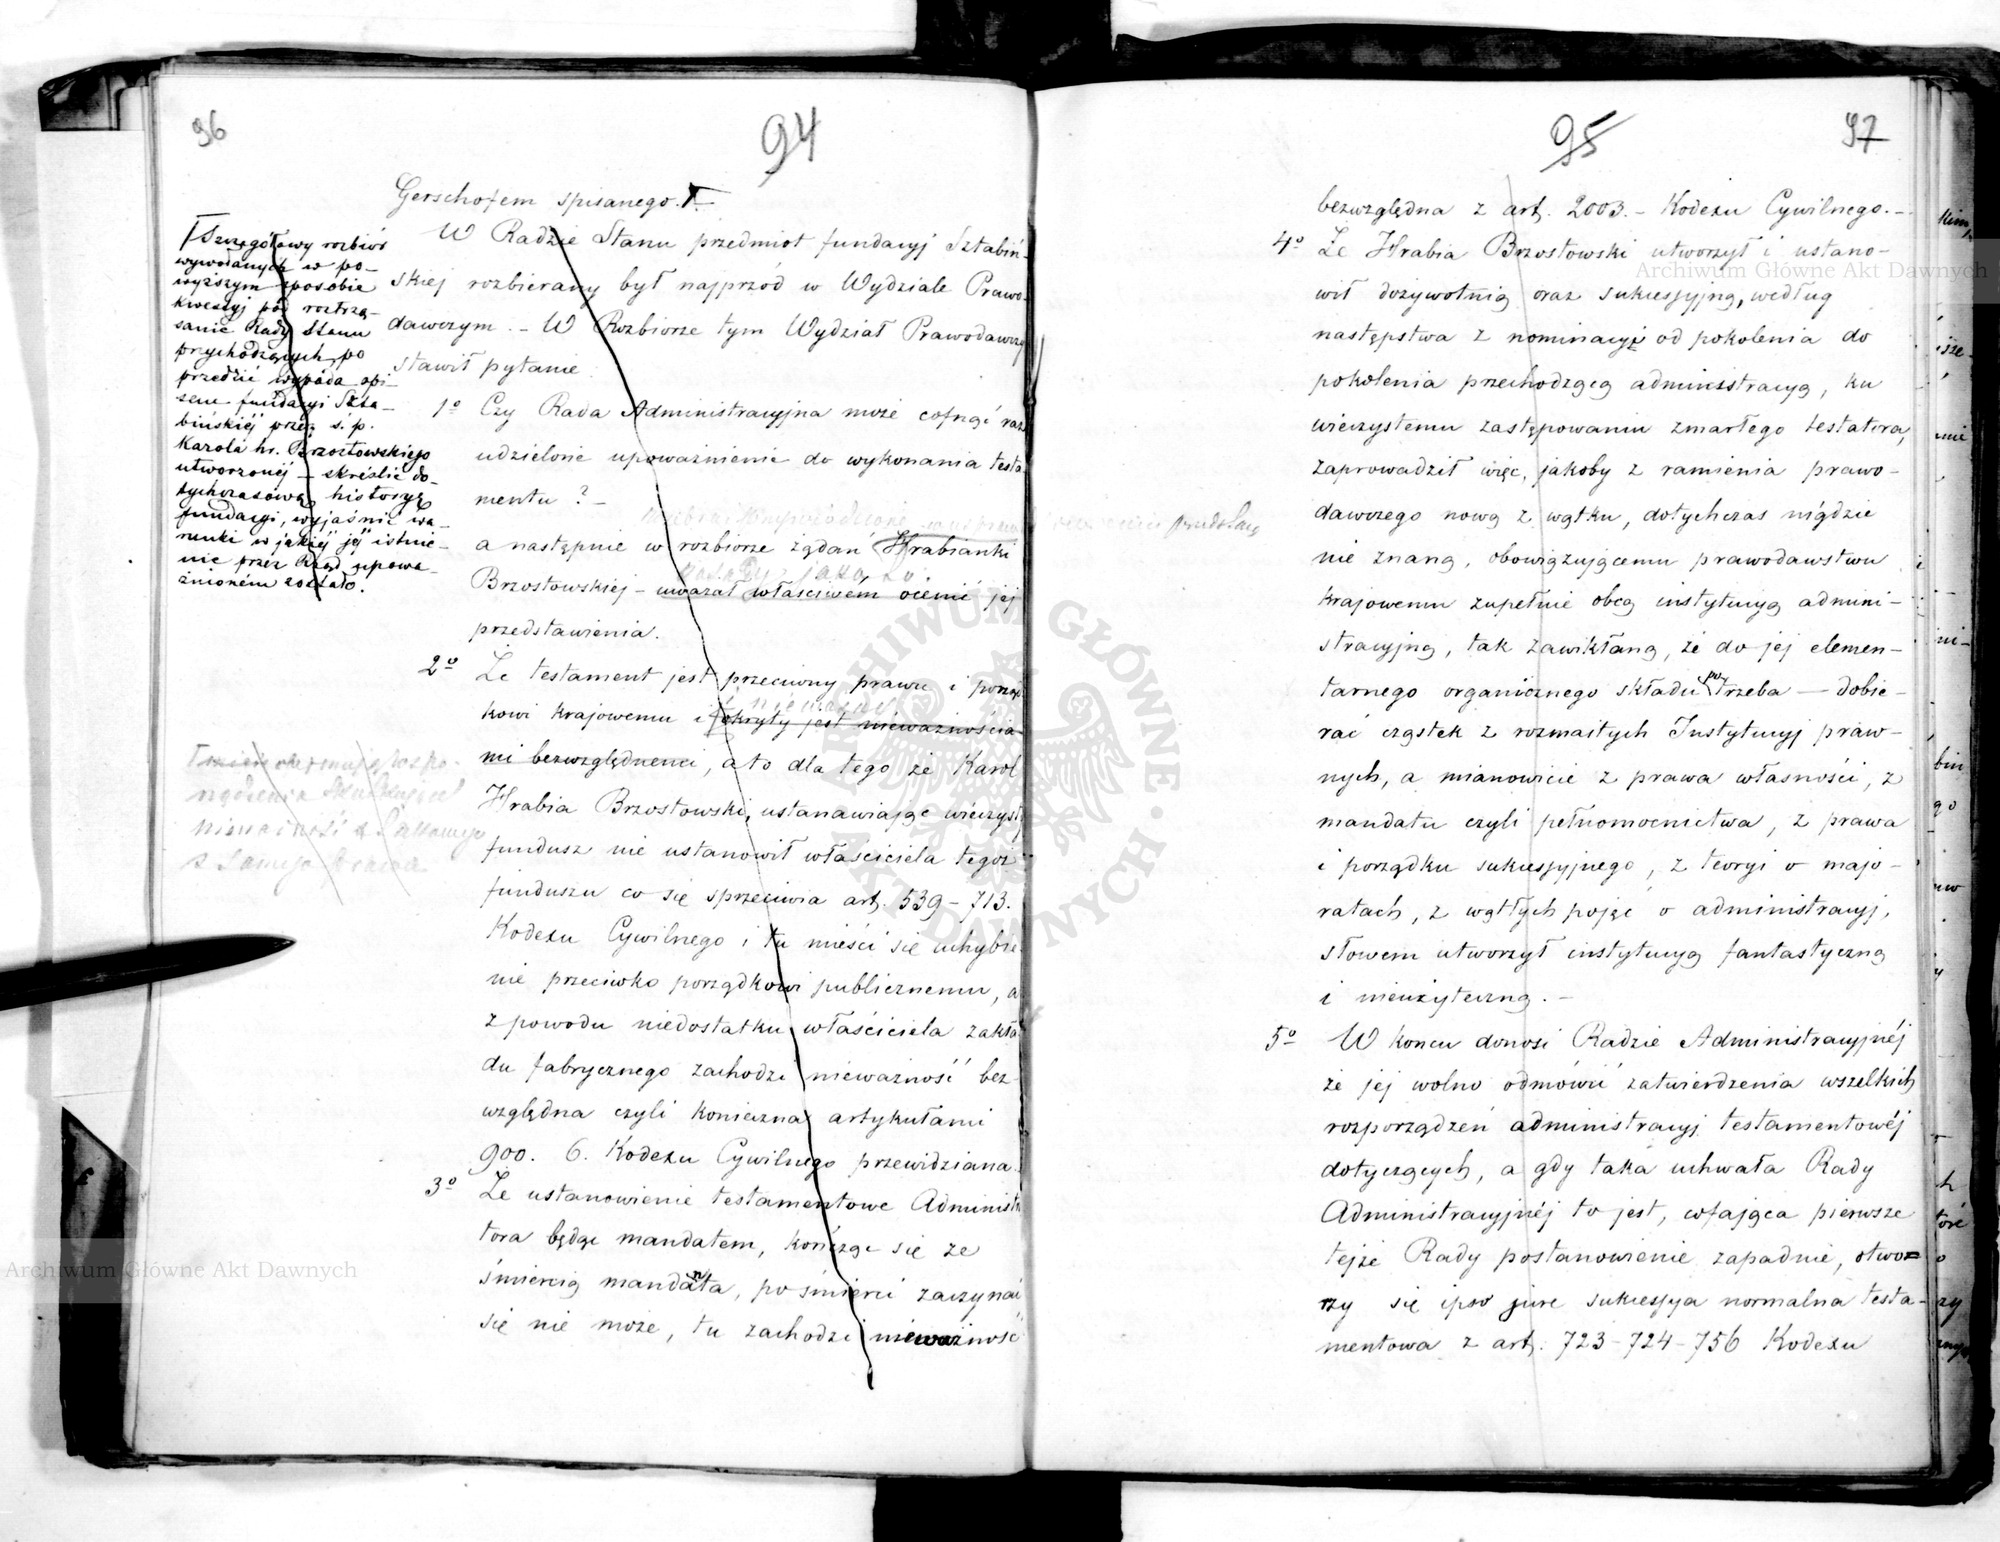 96
94
Gerschofem spisanego. T
T Szczegółowy rozbiór
wywodanych w po-
wyższym sposobie
kwestyj pod roztrzą-
sanie Rady Stanu
przychodzących, po
przedzić wypada opi-
sem fundacyi Szta-
bińskiéj przez ś. p.
Karola hr. Brzostowskiego
utworzonéj – skréślić do-
tychczasową historyę
fundacyi, wyjaśnić wa-
runki w jakiéj jéj istnie-
nie przez Rząd upowa-
żnioném zostało.
W Radzie Stanu przedmiot fundacyj Sztabiń-
skiej rozbierany był najprzód w Wydziale Prawo-
dawczym. – W Rozbiorze tym Wydział Prawodawczy
stawił pytanie.
1º Czy Rada Administracyjna może cofnąć raz
udzielone upoważnienie do wykonania testa-
mentu? –
a następnie w rozbiorze żądań Hrabianki
Brzostowskiej – uważał właściwém ocenić jej
przedstawienia.
2º Że testament jest przeciwny prawu i porząd
kowi krajowemu i okryty jest nieważnościa-
mi bezwzględnemi, a to dla tego że Karol
Hrabia Brzostowski, ustanawiając wieczysty
fundusz nie ustanowił właściciela tegoż
funduszu co się sprzeciwia art. 539 – 713.
Kodexu Cywilnego i tu mieści się uchybie-
nie przeciwko porządkowi publicznemu, a
z powodu niedostatku właściciela zakła
du fabrycznego zachodzi nieważność bez-
względna czyli konieczna artykułami
900. 6. Kodexu Cywilnego przewidziana.
3º Że ustanowienie testamentowe Administra
tora będąc mandatem, kończąc się ze
śmiercią mandanta, po śmierci zaczynać
się nie może, tu zachodzi nieważność
95
97
bezwzględna z art. 2003. – Kodexu Cywilnego. –
4º Że Hrabia Brzostowski utworzył i ustano-
wił dożywotnią oraz sukcessyjną, według
następstwa z nominacyi od pokolenia do
pokolenia przechodzącą administracyą, ku
wieczystemu zastępowaniu zmarłego testatora,
zaprowadził więc, jakoby z ramienia prawo-
dawczego nową z wątku, dotychczas nigdzie
nie znaną, obowiązującemu prawodawstwu
krajowemu zupełnie obcą instytucyą admini-
stracyjną, tak zawikłaną, że do jej elemen-
tarnego organicznego składu potrzeba – dobie-
rać cząstek z rozmaitych Instytucyj praw-
nych, a mianowicie z prawa własności, z
mandatu czyli pełnomocnictwa, z prawa
i porządku sukcessyjnego, z teoryi o majo-
ratach, z wątłych pojęć o administracyj,
słowem utworzył instytucyą fantastyczną
i nieużyteczną. –
5º W końcu donosi Radzie Administracyjnéj
że jej wolno odmówić zatwierdzenia wszelkich
rozporządzeń administracyj testamentowéj
dotyczących, a gdy taka uchwała Rady
Administracyjnéj to jest, cofająca pierwsze
tejże Rady postanowienie zapadnie, otwo-
rzy się ipso jure sukcessya normalna testa-
mentowa z art. 723 – 724 – 756 Kodexu
Archiwum Główne Akt Dawnych
Archiwum Główne Akt Dawnych
ARCHIWUM GŁÓWNE · AKT DAWNYCH ·